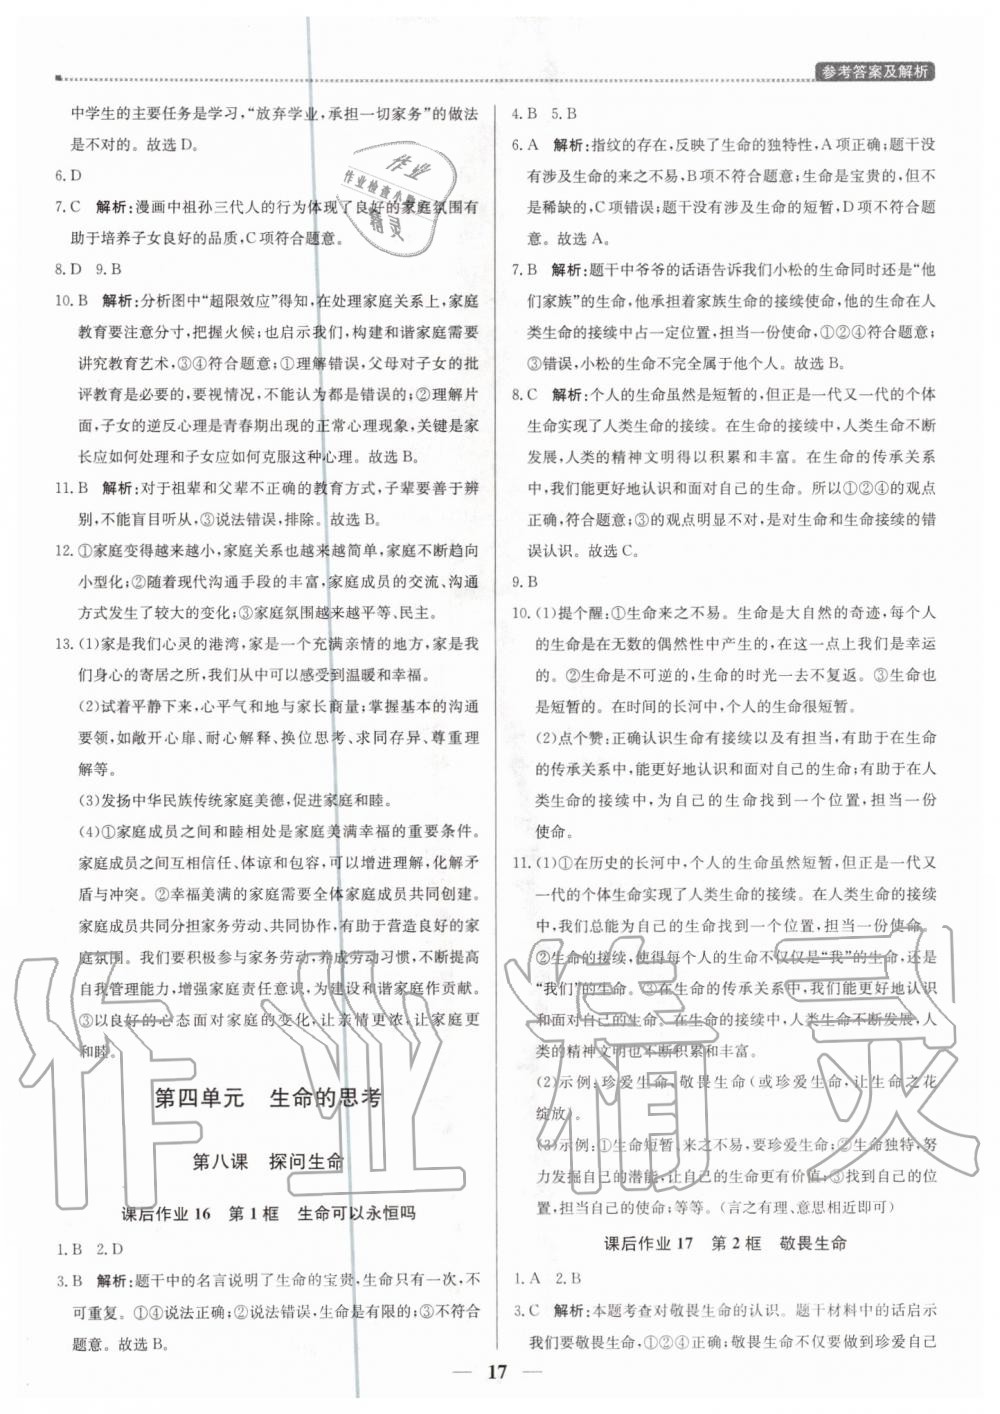 参考答案及解析
中学生的主要任务是学习,“放弃学业,承担一切家务”的做法
是不对的。故选D。
6. D
7. C 解析:漫画中祖孙三代人的行为体现了良好的家庭氛围有
助于培养子女良好的品质,C项符合题意。
8. D 9. B
10. B 解析:分析图中“超限效应”得知,在处理家庭关系上,家庭
教育要注意分寸,把握火候;也启示我们,构建和谐家庭需要
讲究教育艺术,③④符合题意;①理解错误,父母对子女的批
评教育是必要的,要视情况,不能认为都是错误的;②理解片
面,子女的逆反心理是青春期出现的正常心理现象,关键是家
长应如何处理和子女应如何克服这种心理。故选B。
11. B 解析:对于祖辈和父辈不正确的教育方式,子辈要善于辨
别,不能盲目听从,③说法错误,排除。故选B。
12. ①家庭变得越来越小,家庭关系也越来越简单,家庭不断趋向
小型化;②随着现代沟通手段的丰富,家庭成员的交流、沟通
方式发生了较大的变化;③家庭氛围越来越平等、民主。
13. (1)家是我们心灵的港湾,家是一个充满亲情的地方,家是我
们身心的寄居之所,我们从中可以感受到温暖和幸福。
(2)试着平静下来,心平气和地与家长商量;掌握基本的沟通
要领,如敞开心扉、耐心解释、换位思考、求同存异、尊重理
解等。
(3)发扬中华民族传统家庭美德,促进家庭和睦。
(4)①家庭成员之间和睦相处是家庭美满幸福的重要条件。
家庭成员之间互相信任、体谅和包容,可以增进理解,化解矛
盾与冲突。②幸福美满的家庭需要全体家庭成员共同创建。
家庭成员共同分担家务劳动、共同协作,有助于营造良好的家
庭氛围。我们要积极参与家务劳动,养成劳动习惯,不断提高
自我管理能力,增强家庭责任意识,为建设和谐家庭作贡献。
③以良好的心态面对家庭的变化,让亲情更浓,让家庭更
和睦。
第四单元 生命的思考
第八课 探问生命
课后作业16 第1框 生命可以永恒吗
1. B 2. D
3. B 解析:题干中的名言说明了生命的宝贵,生命只有一次,不
可重复。①④说法正确;②说法错误,生命是有限的;③不符合
题意。故选B。
4. B 5. B
6. A 解析:指纹的存在,反映了生命的独特性,A项正确;题干
没有涉及生命的来之不易,B项不符合题意;生命是宝贵的,但
不是稀缺的,C项错误;题干没有涉及生命的短暂,D项不符合题
意。故选A。
7. B 解析:题干中爷爷的话语告诉我们小松的生命同时还是“他
们家族”的生命,他承担着家族生命的接续使命,他的生命在人
类生命的接续中占一定位置,担当一份使命,①②④符合题意;
③错误,小松的生命不完全属于他个人。故选B。
8. C 解析:个人的生命虽然是短暂的,但正是一代又一代的个体
生命实现了人类生命的接续。在生命的接续中,人类生命不断
发展,人类的精神文明得以积累和丰富。在生命的传承关系
中,我们能更好地认识和面对自己的生命。所以①②④的观点
正确,符合题意;③的观点明显不对,是对生命和生命接续的错
误认识。故选C。
9. B
10. (1)提个醒:①生命来之不易。生命是大自然的奇迹,每个人
的生命是在无数的偶然性中产生的,在这一点上我们是幸运
的。②生命是不可逆的,生命的时光一去不复返。③生命
是短暂的。在时间的长河中,个人的生命很短暂。
(2)点个赞:正确认识生命有接续以及有担当,有助于在生命
的传承关系中,能更好地认识和面对自己的生命;有助于在人
类生命的接续中,为自己的生命找到一个位置,担当一份
使命。
11. (1)①在历史的长河中,个人的生命虽然短暂,但正是一代又
一代的个体生命实现了人类生命的接续。在人类生命的接续
中,我们总能为自己的生命找到一个位置,担当一份使命。
②生命的接续,使得每个人的生命不仅仅是“我”的生命,还是
“我们”的生命。③在生命的传承关系中,我们能更好地认识
和面对自己的生命。在生命的接续中,人类生命不断发展,人
类的精神文明也不断积累和丰富。
(2)示例:珍爱生命,敬畏生命(或珍爱生命,让生命之花
绽放)。
(3)示例:①生命短暂,来之不易,要珍爱生命;②生命独特,努
力发掘自己的潜能,让自己的生命更有价值;③找到自己的位
置,担当自己的使命;等等。(言之有理、意思相近即可)
课后作业17 第2框 敬畏生命
1. A 2. B
3. C 解析:本题考查对敬畏生命的认识。题干材料中的话启示
我们要敬畏生命,①②④正确;敬畏生命不仅要做到珍爱自己
17
作业
作业检查小
精灵
作业精灵